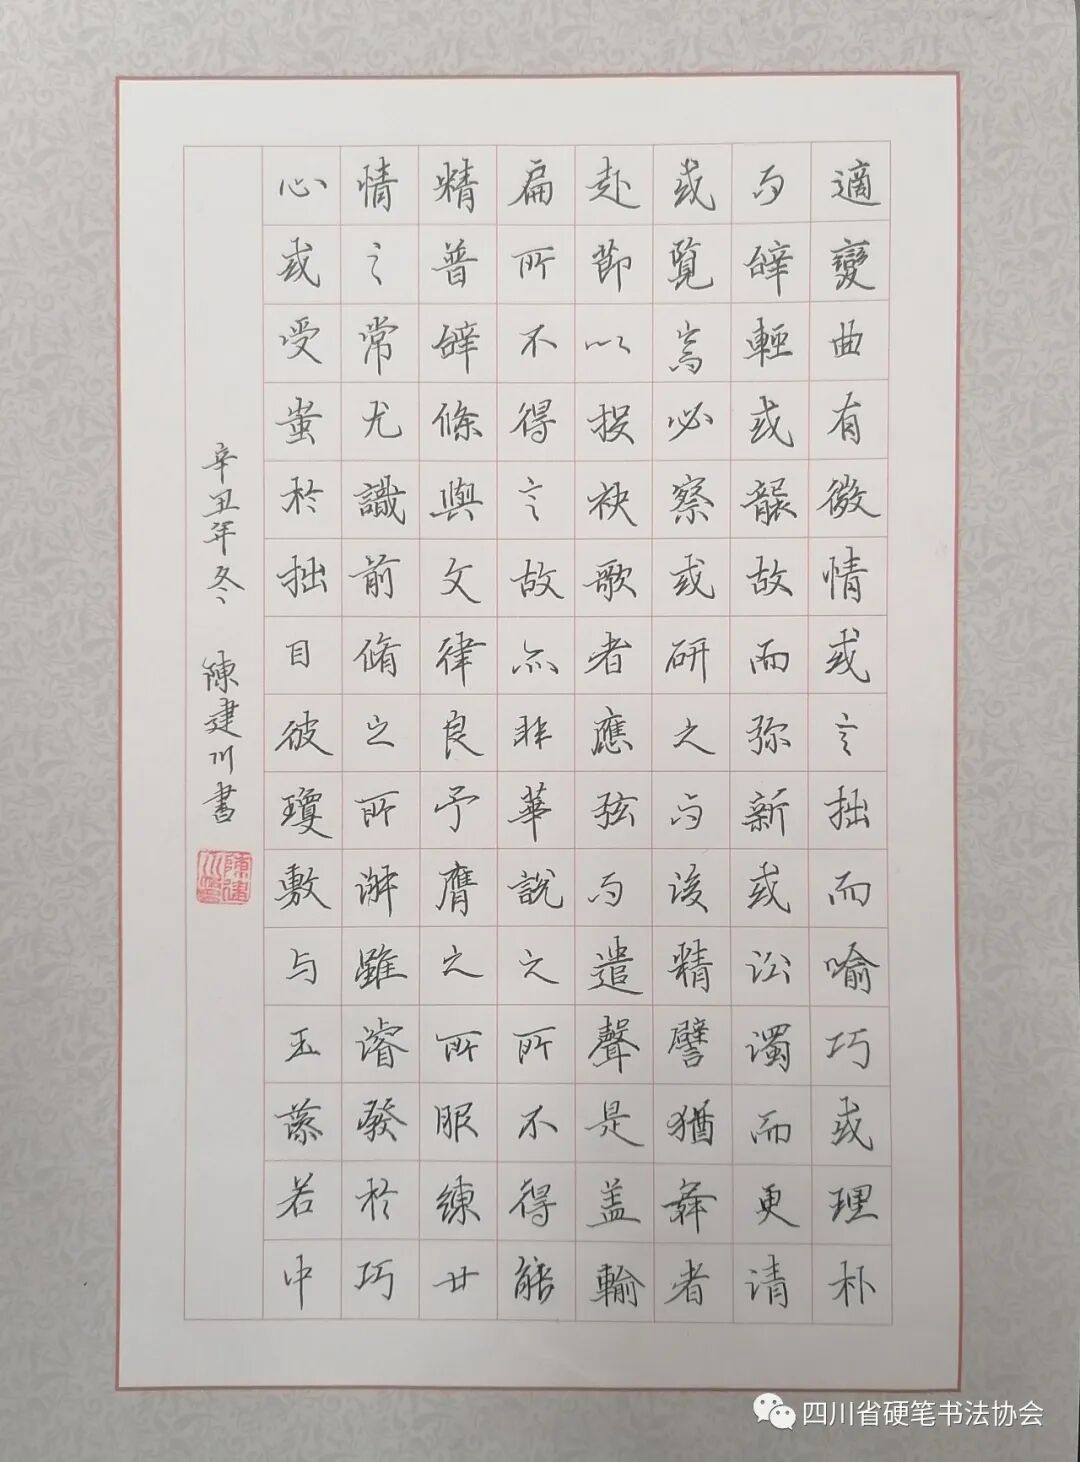 適變曲有微情或言拙而喻巧或理朴
而辭輕或襲故而弥新或沿濁而更清
或覽寫必察或研之而後精譬猶舞者
赴節以投袂歌者應弦而遣聲是盖輪
扁所不得言故亦非華說之所不得能
精普辭條與文律良予膺之所服練世
情之常尤識前脩之所淑雖濬發於巧
心或受蚩於拙目彼瓊敷与玉藻若中
辛丑年冬 陳建川書
四川省硬笔书法协会